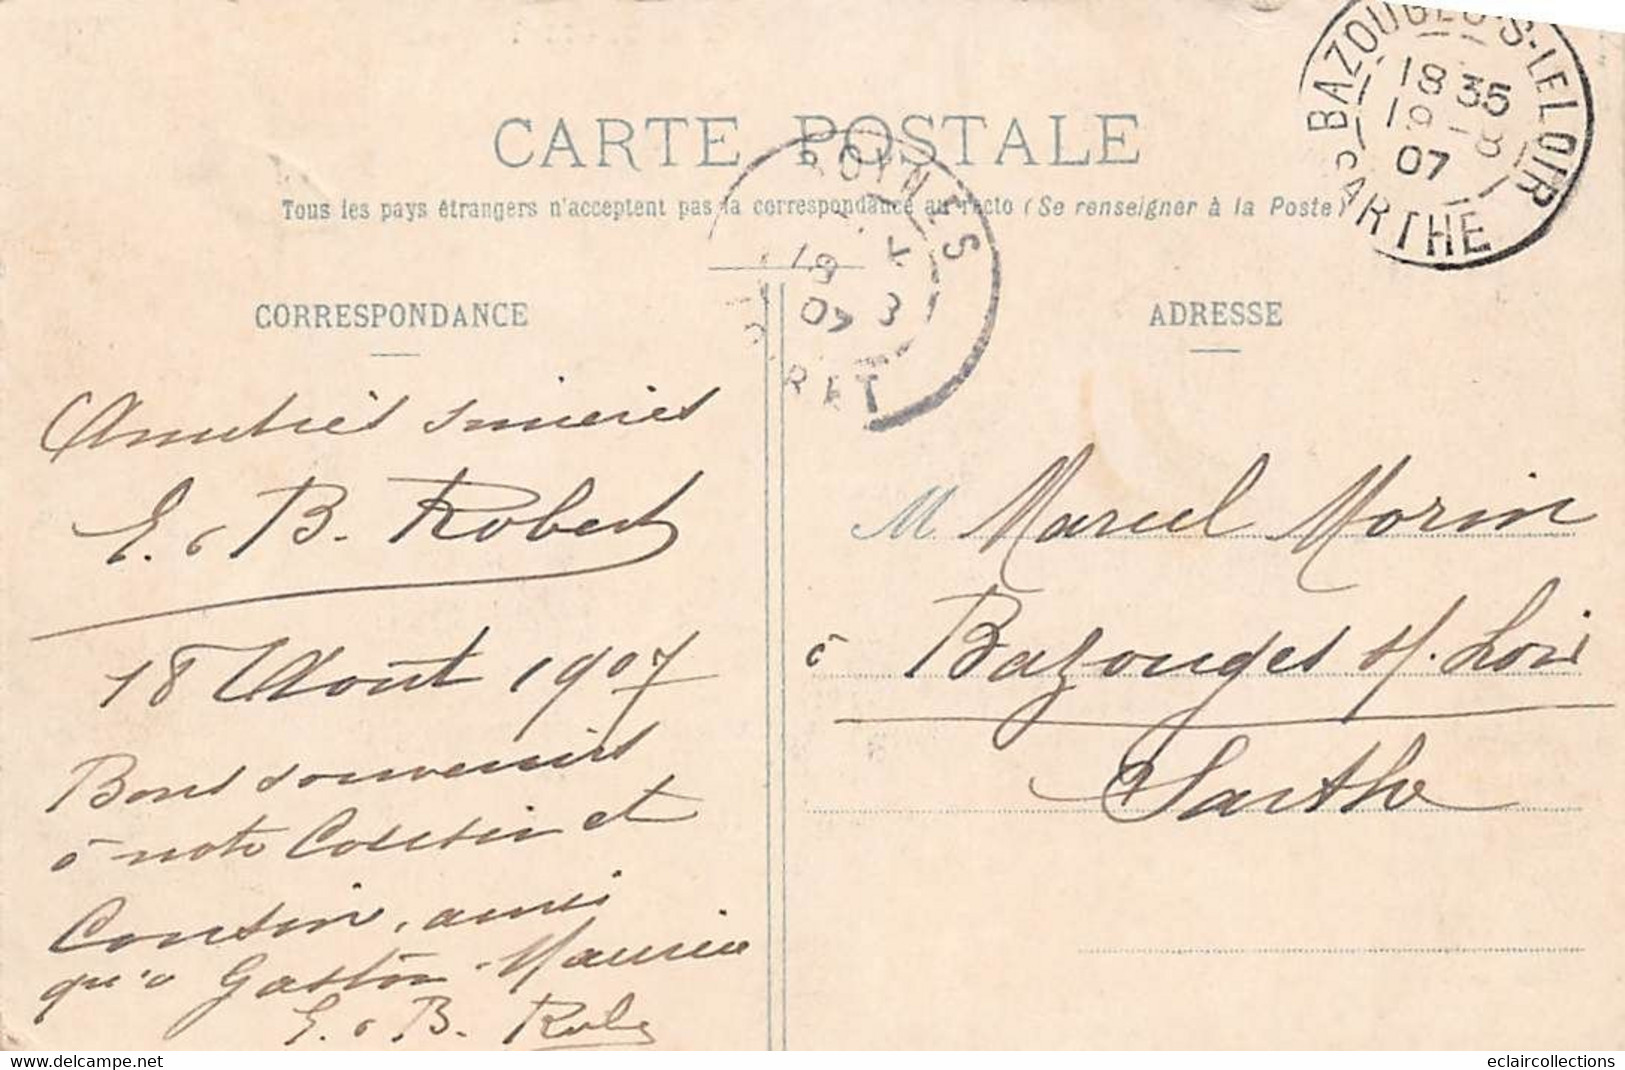 CARTE POSTALE
Tous les pays étrangers n'acceptent pas la correspondance au recto (Se renseigner à la Poste)
BAZOUGES-S-LE LOIR
18 35
19 -8
07
SARTHE
BOYNES
18
8
07
RET
CORRESPONDANCE
ADRESSE
Amitiés sincères
E. & B. Robert
18 Aout 1907
Bons souvenirs
à notre Cousin et
Cousin, ainsi
qu'à Gaston - Maurice
E. & B. Robe
M Marcel Morin
à Bazouges s/. Loir
Sarthe
La marque de commerce
eclaircollections